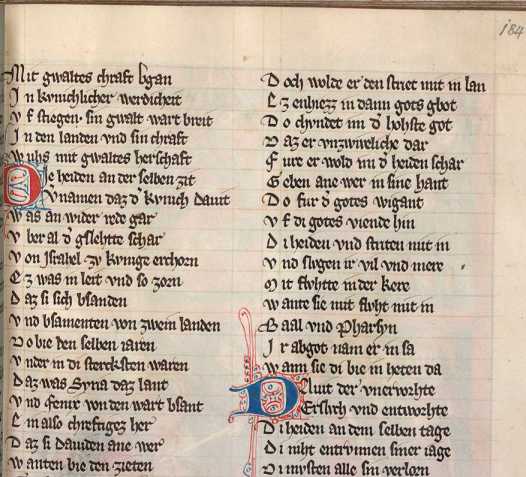 184
Mit gwaltes chraft bgan
In kvnichlicher werdicheit
Vf stiegen· sin gwalt wart breit
In den landen vnd sin chraft
Wuhs mit gwaltes herschaft
Die heiden an der selben zit
Vernamen daz der kvnich Dauit
Was an wider rede gar
Vber al der gslehtte schar
Von Israhel zv kvnige erchorn
Ez was in leit vnd so zorn
Daz si sich bsanden
Vnd bsamenten von zwein landen
Do bie den selben iaren
Vnder in di stercksten waren
Daz was Syna daz lant
Vnd fenix von den wart bsant
Ein also chreftigez her
Daz si Dauiden ane wer
Wanten bie den zieten
Doch wolde er den striet mit in lan
Ez enhiezz in dann gots gbot
Do chvndet im der hohste got
Daz er vnzwiveliche dar
Fure er wold im der heiden schar
Geben ane wer in sine hant
Do fur der gotes wigant
Vf di gotes viende hin
Di heiden vnd striten mit in
Vnd slvgen ir vil vnd mere
Mit flvhtte in der kere
Wante sie mit flvht mit in
Baal vnd Pharsyn
Ir abgot nam er in sa
Wann sie di bie in heten da
Dluit der vnerworhte
Erslvch vnd entworhte
Di heiden an dem selben tage
Di niht entrvnnen siner iage
Di mvsten alle sin verlorn